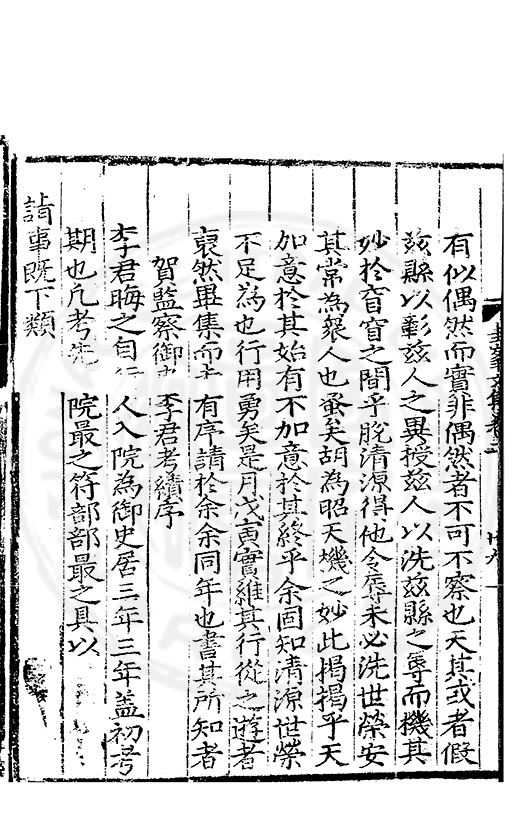 有似偶然而實非偶然者不可不察也天其或者假
茲縣以彰茲人之異授茲人以洗茲縣之辱而機其
妙於盲窅之間乎脫清源得他令辱未必洗世榮安
其常為衆人也蚤矣胡為昭天機之妙此揭揭乎天
如意於其始有不加意於其終乎余固知清源世榮
不足為也行用勇矣是月戊寅實維其行從之遊者
裒然畢集而 有序請於余余同年也書其所知者
賀監察御史李君考績序
李君晦之自行人入院為御史居三年三年蓋初考
期也凡考先 院最之符部部最之具以
請事既下類